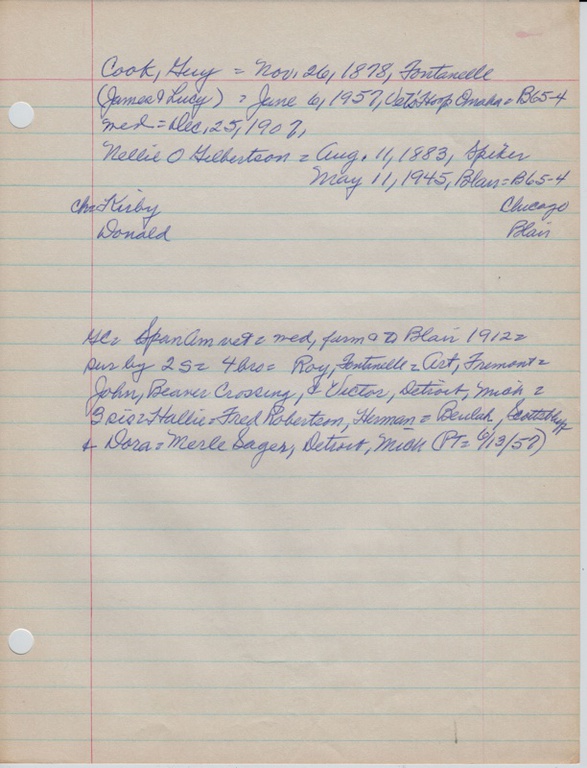 Cook, Guy = Nov. 26, 1878, Fontanelle
(James & Lucy) = June 6, 1957, Vet's Hosp Omaha = B65-4
med = Dec. 25, 1907,
Nellie O Gilbertson = Aug. 11, 1883, Spiker
May 11, 1945, Blair = B65-4
ch = Kirby Chicago
Donald Blair
Span Am vet = med, farm Blair 1912 =
sur by 2 S = 4 bro = Roy, Fontanelle = Art, Fremont =
John, Beaver Crossing, & Victor, Detroit, Mich =
3 sis = Hallie = Fred Robertson, Herman = Beulah, Scottsbluff
& Dora = Merle Sager, Detroit, Mich (PT = 6/13/57)